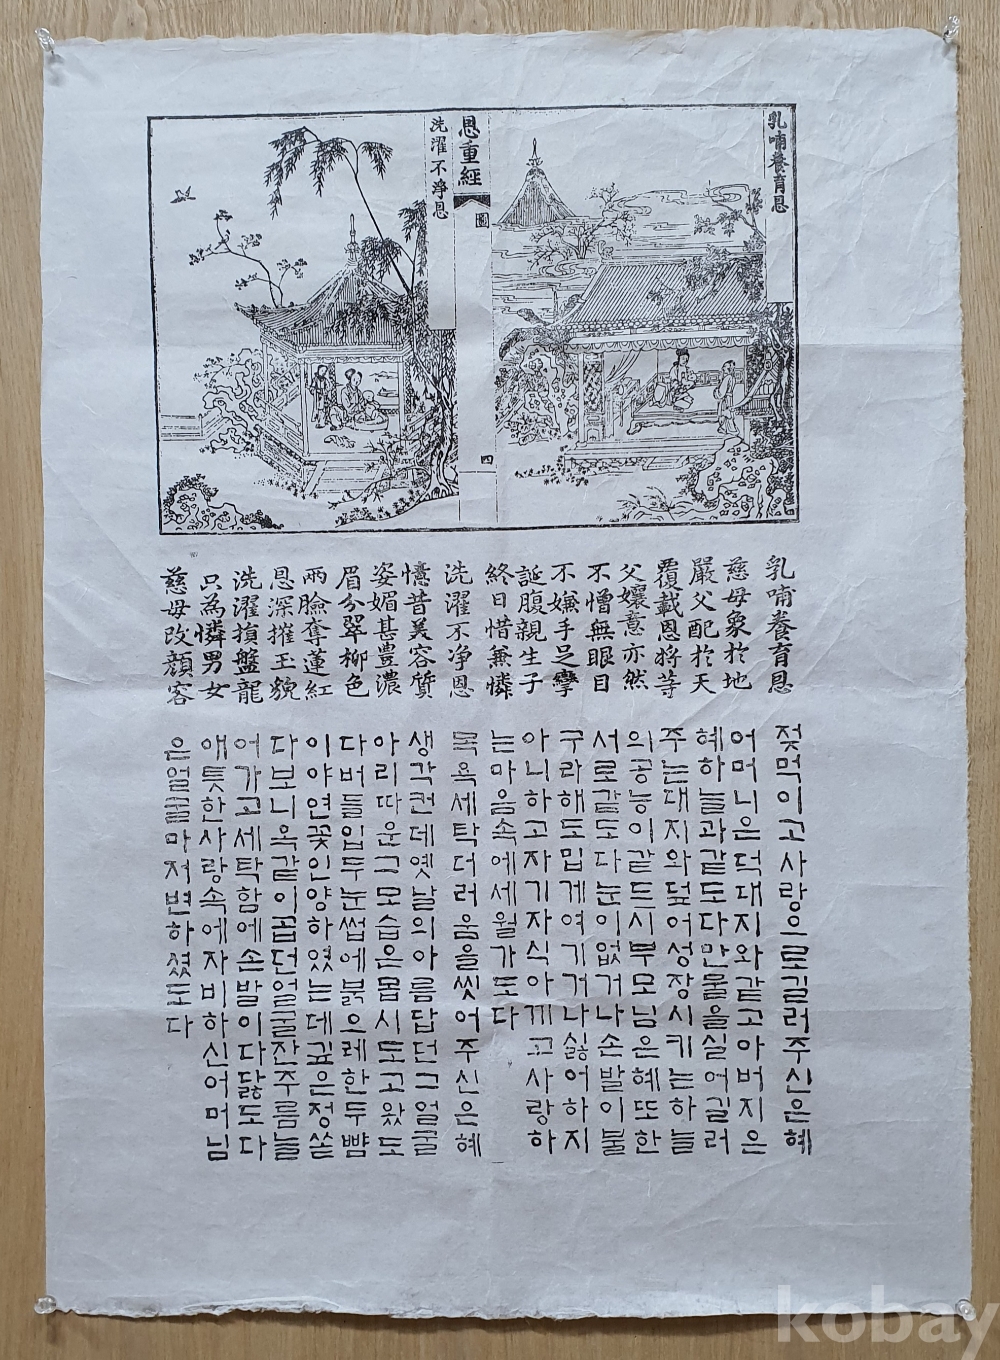 乳哺養育恩
恩重經
圖
四
洗濯不淨恩
乳哺養育恩
慈母象於地
嚴父配於天
覆載恩將等
父孃意亦然
不憎無眼目
不嫌手足攣
誕腹親生子
終日惜兼憐
洗濯不净恩
憶昔美容質
姿媚甚豊濃
眉分翠柳色
兩臉奪蓮紅
恩深摧玉貌
洗濯損盤龍
只為憐男女
慈母改顔容
젖먹이고사랑으로길러주신은혜
어머니은덕대지와같고아버지은
혜하늘과같도다만물을실어길러
주는대지와덮어성장시키는하늘
의공능이같드시부모님은혜또한
서로같도다눈이없거나손발이불
구라해도밉게여기거나싫어하지
아니하고자기자식아끼고사랑하
는마음속에세월가도다
목욕세탁더러움을씻어주신은혜
생각컨데옛날의아름답던그얼굴
아리따운그모습은몹시도고왔도
다버들입두눈썹에붉으레한두뺨
이야연꽃인양하였는데깊은정쏟
다보니옥같이곱던얼굴잔주름늘
어가고세탁함에손발이다닳도다
애틋한사랑속에자비하신어머님
은얼굴마저변하셨도다
kobay